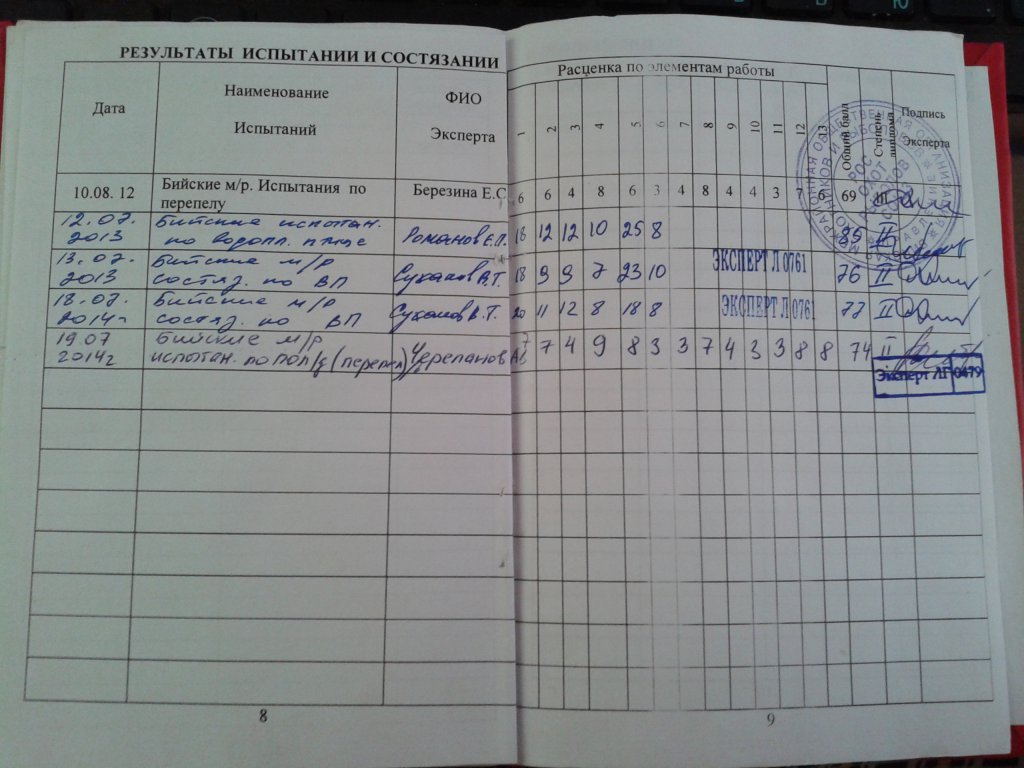 РЕЗУЛЬТАТЫ ИСПЫТАНИИ И СОСТЯЗАНИИ
Расценка по элементам работы
Дата
Наименование
Испытаний
ФИО
Эксперта
1 2 3 4 5 6 7 8 9 10 11 12 13
Общий балл
Степень диплома
Подпись
Эксперта
10.08. 12 Бийские м/р. Испытания по Березина Е.С 6 6 4 8 6 3 4 8 4 4 3 7 6 69 III
перепелу
12.07. Бийские испытан. Романов Е.П. 18 12 12 10 25 8 85 II
2013 по водопл. птице
13.07. Бийские м/р Суханов В.Т. 18 9 9 7 23 10 ЭКСПЕРТ Л 0761 76 II
2013 состяз. по ВП
18.07. Бийские м/р Суханов В.Т. 20 11 12 8 18 8 ЭКСПЕРТ Л 0761 77 II
2014г состяз. по ВП
19.07 Бийские м/р Черепанов АВ 7 7 4 9 8 3 3 7 4 3 3 8 8 74 II
2014г испытан. по пол/д (перепел)
Эксперт ЛГ 0479
8
9